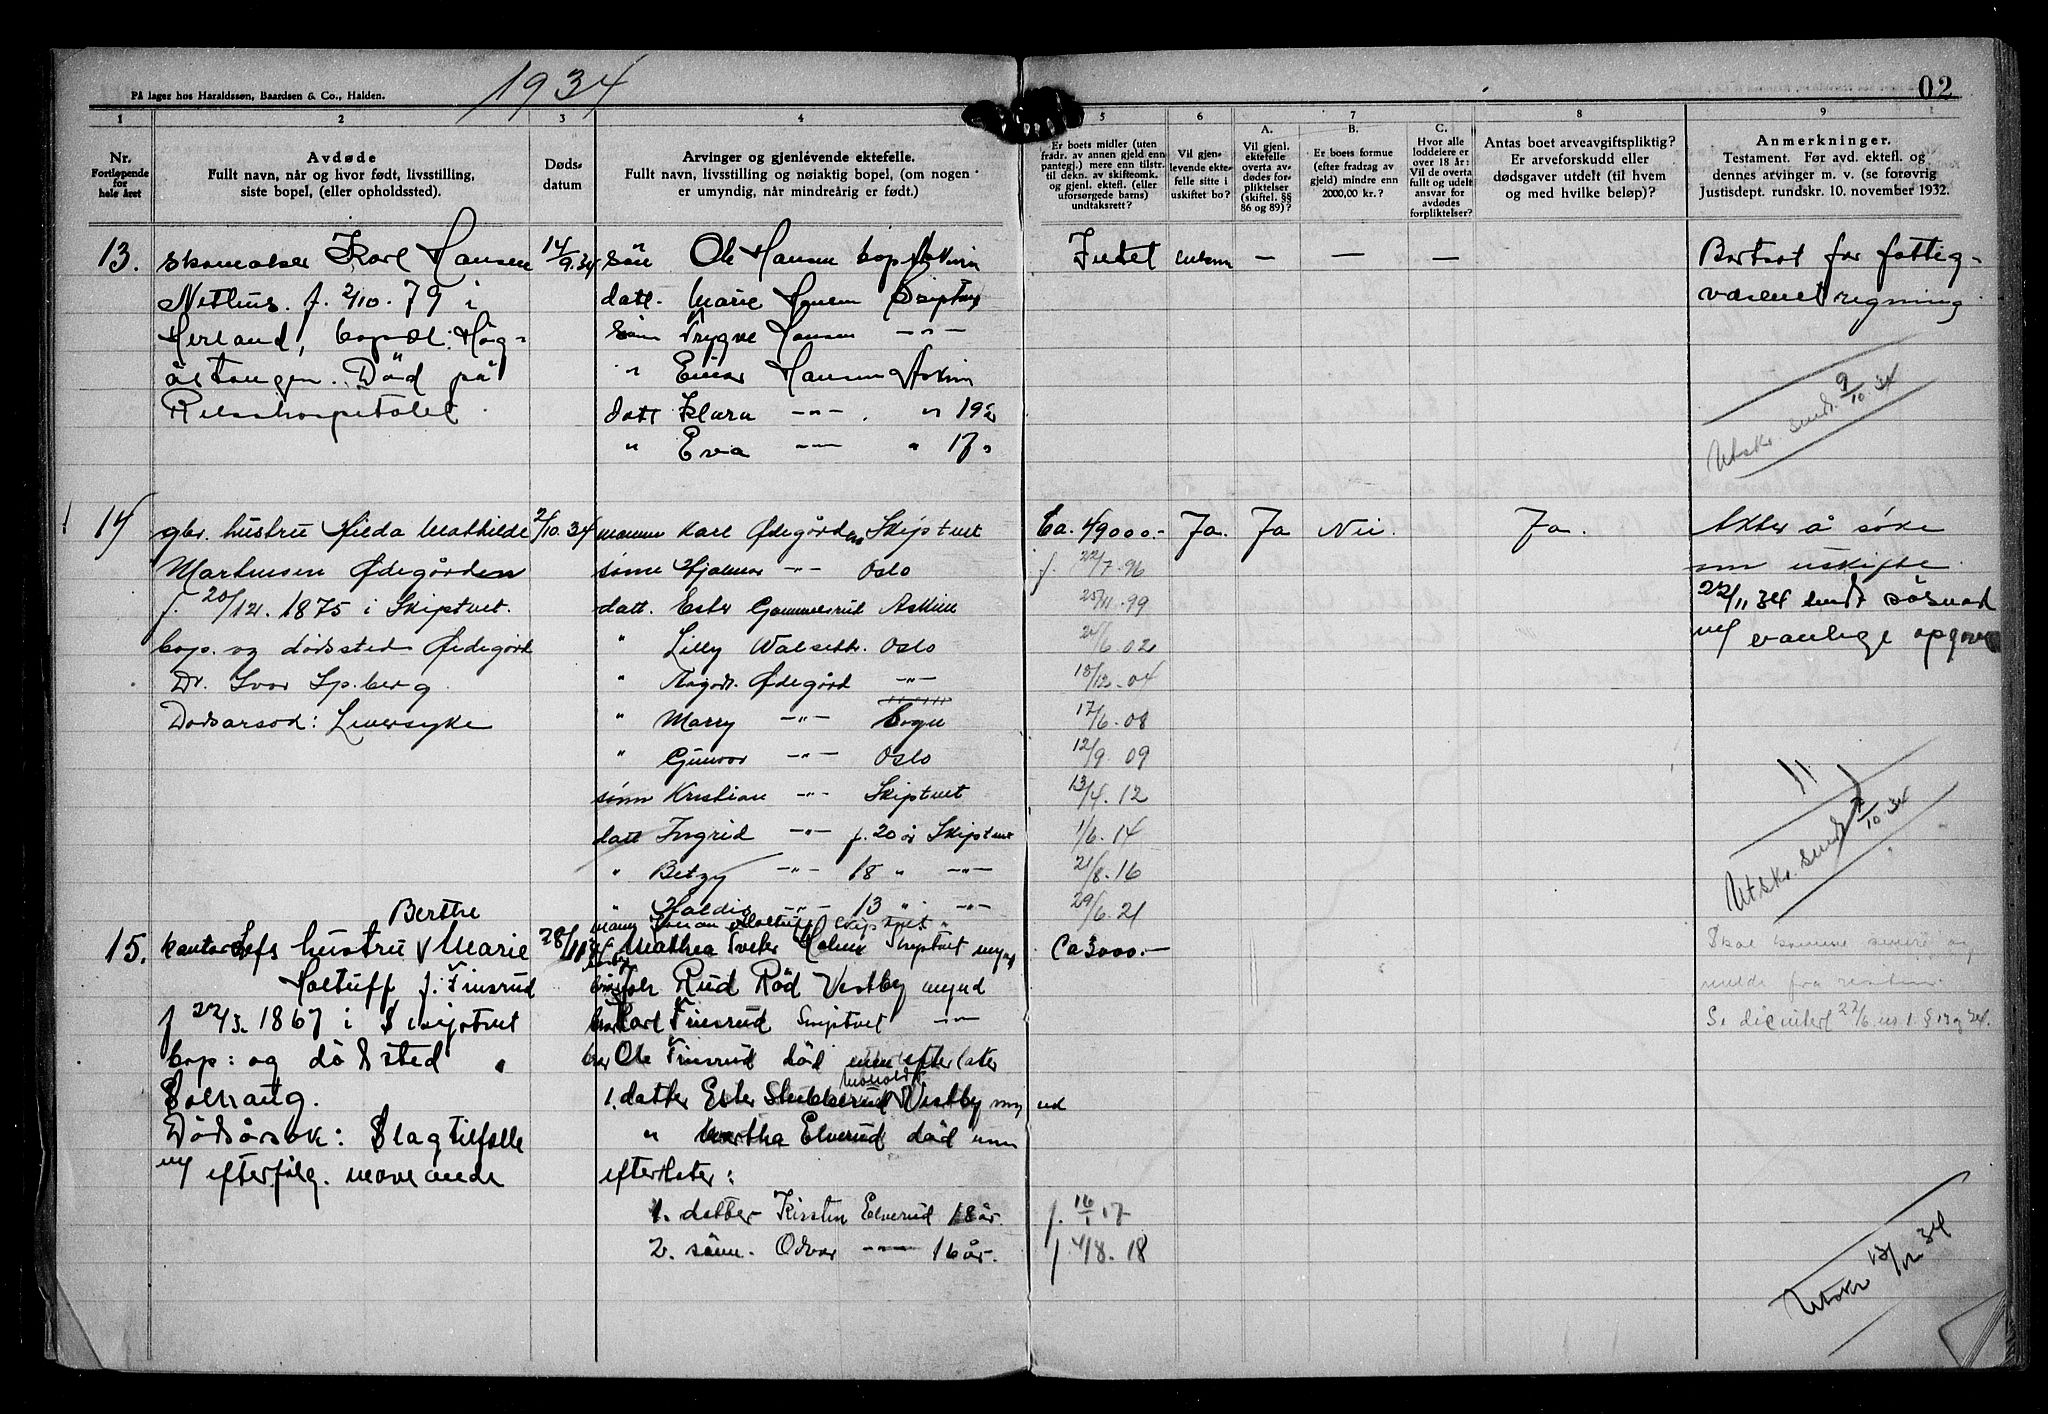 1934
02
På lager hos Haraldssøn, Baardsen & Co., Halden.
1 2 3 4 5 6 7 8 9
Nr.
Fortløpende
for
hele året
Avdøde
Fullt navn, når og hvor født, livsstilling,
siste bopel, (eller opholdssted).
Døds-
datum
Arvinger og gjenlevende ektefelle.
Fullt navn, livsstilling og nøiaktig bopel, (om nogen
er umyndig, når mindreårig er født.)
Er boets midler (uten
fradr. av annen gjeld enn
pantegj.) mere enn tilstr.
til dekn. av skifteomk.
og gjenl. ektefl. (eller
uforsørgede barns)
undtaksrett?
Vil gjen-
levende ekte-
felle sitte i
uskiftet bo?
A.
Vil gjenl.
ektefelle
overta av-
dødes for-
pliktelser
(skiftel. §§
86 og 89)?
B.
Er boets formue
(efter fradrag av
gjeld) mindre enn
2000,00 kr.?
C.
Hvor alle
loddeiere er
over 18 år:
Vil de overta
fullt og udelt
ansvar for
avdødes
forpliktelser?
Antas boet arveavgiftspliktig?
Er arveforskudd eller
dødsgaver utdelt (til hvem
og med hvilke beløp)?
Anmerkninger.
Testament. Før avd. ektefl. og
dennes arvinger m. v. (se forøvrig
Justisdept. rundskr. 10. november 1932.
13.
skomaker Karl Hansen
f. 2/10. 79 i
Herland, bopæl: Høg-
åstangen. Död på
Rikshospitalet
14/9.34
sön Ole Hansen bop. Askim
datt. Marie Hansen Skiptvet
sön Trygve Hansen -"-
" Einar Hansen Askim
datt Klara -"- " 19 år
" Eva -"- " 17 "
Intet enkem. — — —
Bortsat for fattig-
væsenet regning
Utskr. sendt 9/10.34
14
gbr. hustru Hilda Mathilde
Martinsen Ødegården
f. 20/12. 1875 i Skiptvet.
bop. og dødssted Ødegård
Dr. Ivar Spberg.
Dødsårsak: Leversyke
2/10.34
mann Karl Ødegården Skiptvet
sønn Hjalmar -"- Oslo
datt. Ester Gammelsrud Askim
" Lilly Walseth. Oslo
" Aagot. Ødegård -"-
" Marry -"- Sogn
" Gunvor -"- Oslo
sønn Kristian -"- Skiptvet
datt Ingrid -"- f. 20 år Skiptvet
" Betzy -"- 18 " -"-
" Haldis -"- 13 " -"-
Ca. 49000.- Ja. Ja Nei. Ja.
f. 22/7. 96
25/11. 99
/6 02
18/12. 04
17/6. 08
12/9 09
13/4. 12
1/6. 14
21/8. 16
29/6. 21
Akter å søke
om uskifte
22/11 34 sendt søknad
m/ vanlige opgaver
Utskr. sendt /10.34
15.
Berthe
kantorLofs hustru Marie
Holtuff f. Finsrud
f 22/3. 1867 i Skiptvet
bop: og dödsted "
Solhaug.
Dödsårsak: Slagtilfelle
m/ efterfølg.
28/11
mann Johan Holtuff Skiptvet
Mathea Tveter Holm Skiptvet mynd
Rud Röd Vestby mynd
bror Karl Finsrud Skiptvet -"-
bror Ole Finsrud död men efterlater
1. datter Ester Stubberud Vestby mynd
" Martha Elverud död men
efterlater:
1. datter Kirsten Elverud 18 år.
2. sönn. Odvar -"- 16 år.
Ca 3000.-
f. 16/1 17
f 4/8. 18
Skal komme senere og
melde fra
Utskr 13/12 34